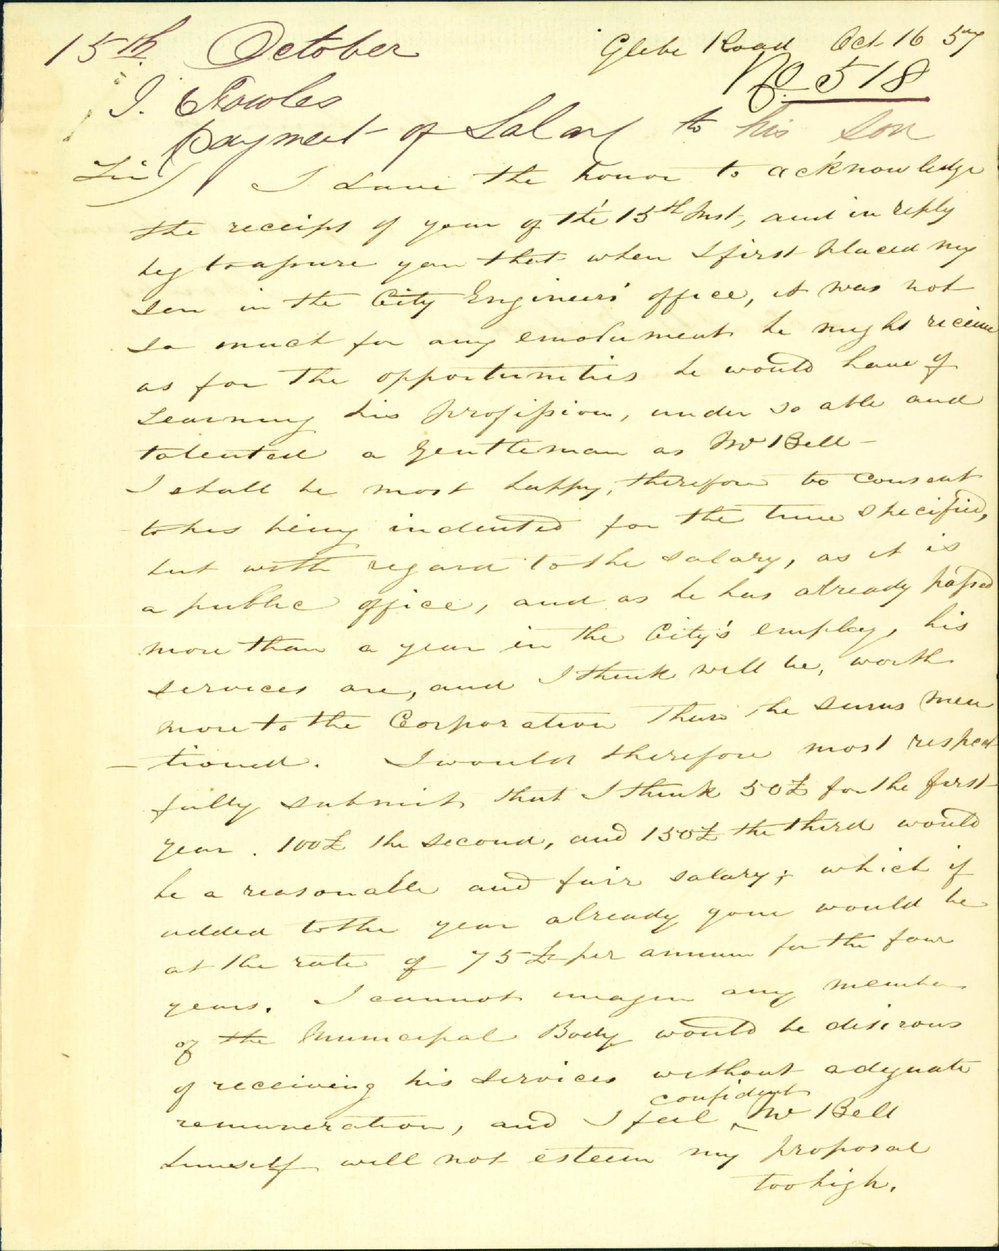 15th October
Glebe Road Oct 16 57
No. 518
J. Fowles
payment of Salary to his son
Sir) I have the honor to acknowledge
the receipt of your of the 15th Inst, and in reply
beg to assure you that when I first placed my
son in the City Engineers' office, it was not
so much for any emolument he might receive
as for the opportunities he would have of
learning his profission, under so able and
talented a Gentleman as Mr Bell -
I shall be most happy, therefore to consent
to his being indented for the time specified,
but with regard to the salary, as it is
a public office, and as he has already passed
more than a year in the City's employ, his
services are, and I think will be, worth
more to the Corporation than the sums men
tioned. I would therefore most respect
fully submit that I think 50£ for the first
year. 100£ the second, and 150£ the third would
be a reasonable and fair salary; which if
added to the year already gone would be
at the rate of 75£ per annum for the four
years. I cannot imagin any member
of the Municipal Body would be disirous
of receiving his services without adequate
remuneration, and I feel confident Mr Bell
himself will not esteem my proposal
too high.